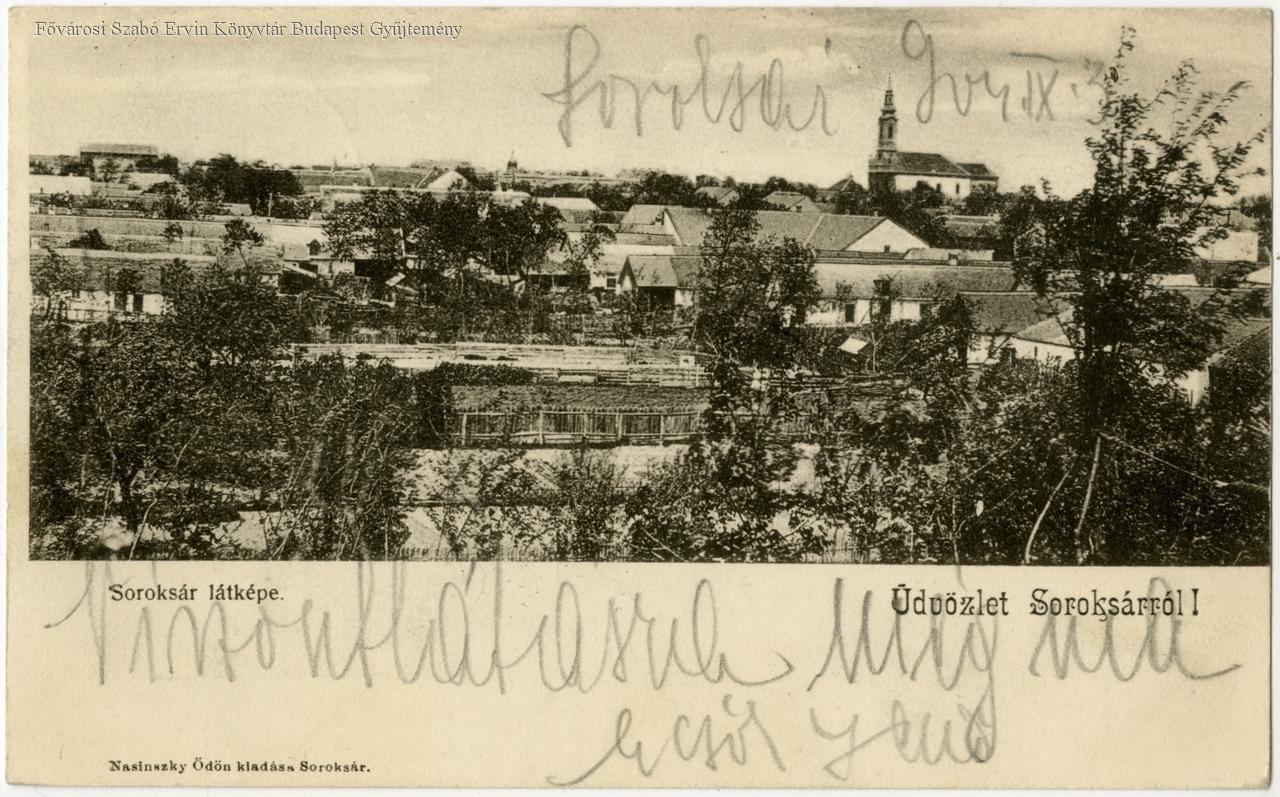 Fővárosi Szabó Ervin Könyvtár Budapest Gyűjtemény
Soroksár 904 IX. 3
Soroksár látképe.
Üdvözlet Soroksárról!
Viszontlátásra még ma
Jenő
Nasinszky Ödön kiadása Soroksár.